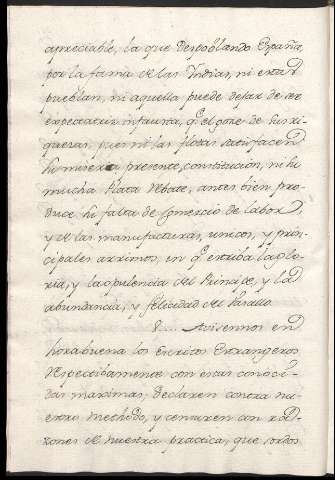 apreciable, la que despoblando España,
por la fama de las Indias, ni estas
pueblan, ni aquella puede dejar de ser
infausta, el goce de sus ri-
quezas, pues ni las flotas satisfacen
su misera presente constitucion, ni su
mucha Plata debate, antes bien pro-
duce su falta de Comercio de labor,
y de las manufacturas, unicos, y prin-
cipales arrimos, en q.e estriba la glo-
ria, y la opulencia del Principe, y la
abundancia, y felicidad del Vasallo.
8.... Avisennos en
horabuena los Escritos Estrangeros
despectibamente con estas conoci-
das maximas; declaren contra nu-
estro methodo, y censuren con ra-
zones de nuestra practica, que todos